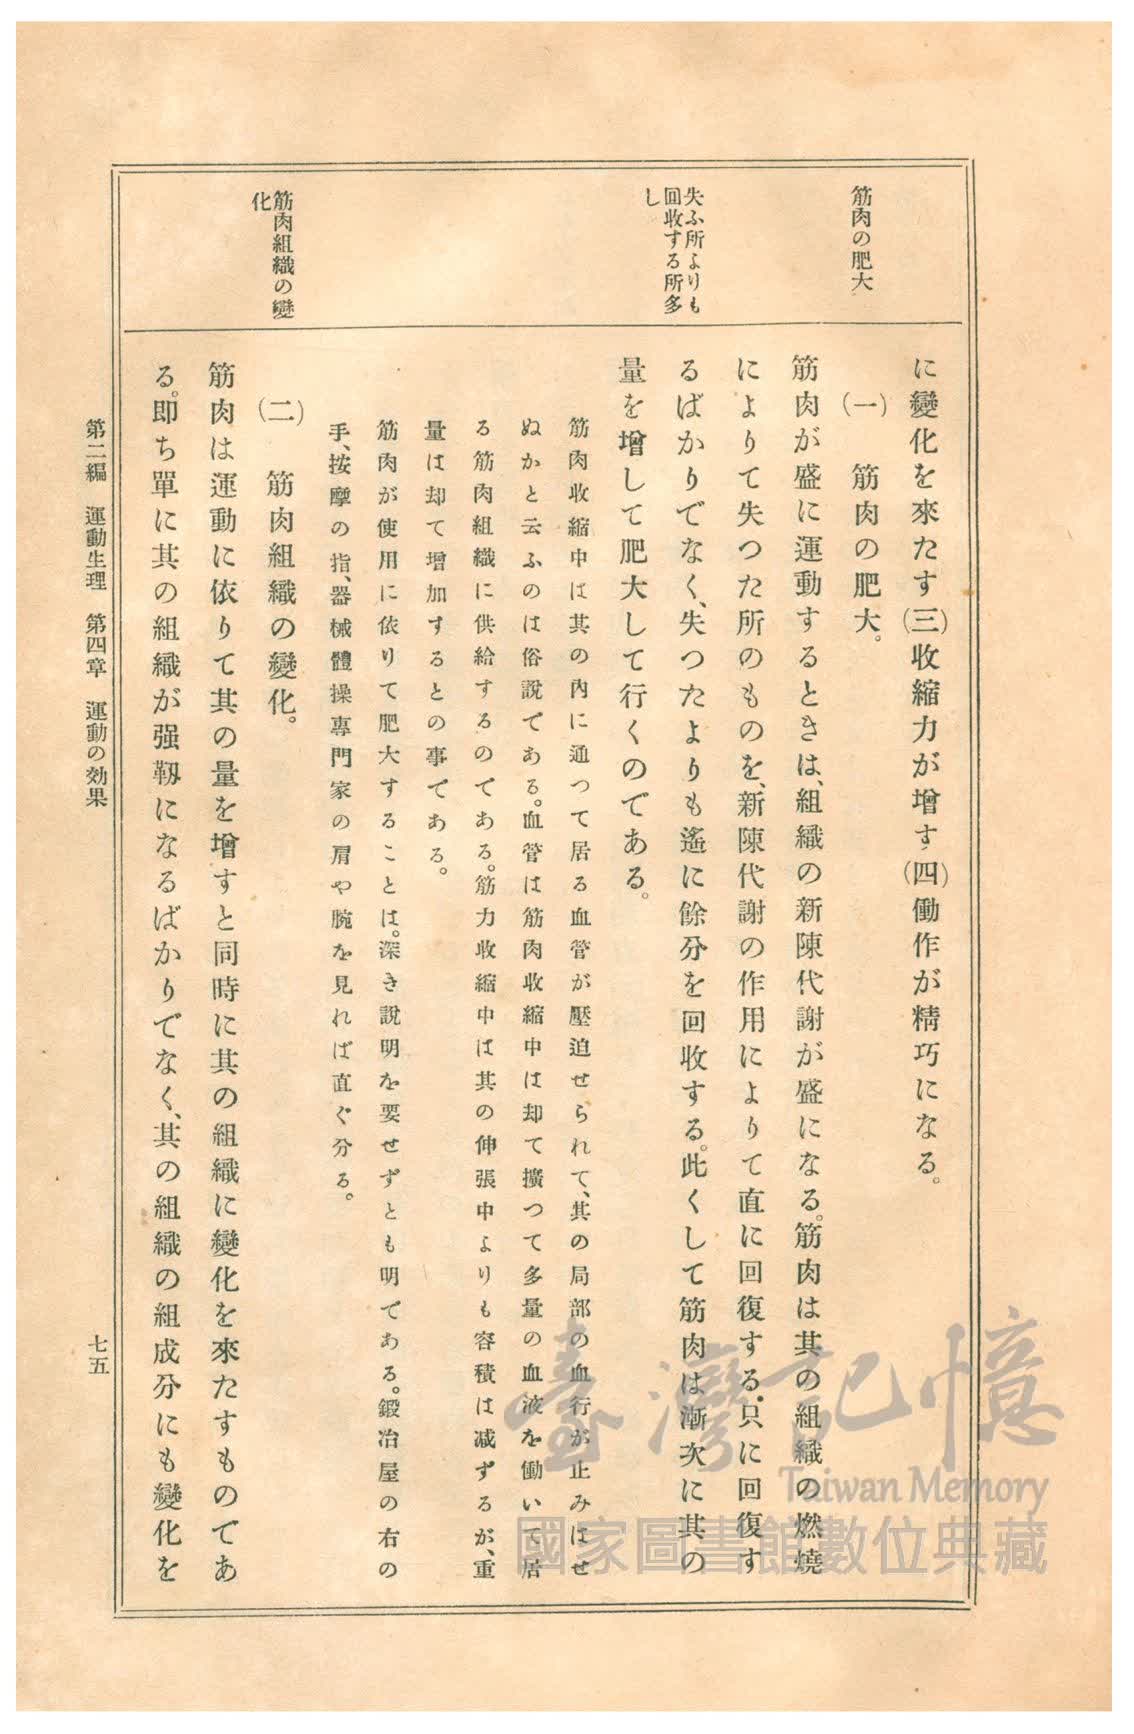 筋肉の肥大
失ふ所よりも
回收する所多
し
筋肉組織の變
化
に變化を來たす(三)收縮力が增す(四)働作が精巧になる。
(一)　筋肉の肥大。
筋肉が盛に運動するときは、組織の新陳代謝が盛になる。筋肉は其の組織の燃燒
によりて失つた所のものを、新陳代謝の作用によりて直に回復する.只に回復す
るばかりでなく、失つたよりも遙に餘分を回收する。此くして筋肉は漸次に其の
量を增して肥大して行くのである。
筋肉收縮中は其の內に通つて居る血管が壓迫せられて、其の局部の血行が止みはせ
ぬかと云ふのは俗說である。血管は筋肉收縮中は却て擴つて多量の血液を働いて居
る筋肉組織に供給するのである。筋力收縮中は其の伸張中よりも容積は減ずるが、重
量は却て增加するとの事である。
筋肉が使用に依りて肥大することは。深き說明を要せずとも明である。鍛冶屋の右の
手、按摩の指、器械體操專門家の肩や腕を見れば直ぐ分る。
(二)　筋肉組織の變化。
筋肉は運動に依りて其の量を增すと同時に其の組織に變化を來たすものであ
る。即ち單に其の組織が强靱になるばかりでなく、其の組織の組成分にも變化を
第二編　運動生理　第四章　運動の効果
七五
臺灣記憶
Taiwan Memory
國家圖書館數位典藏